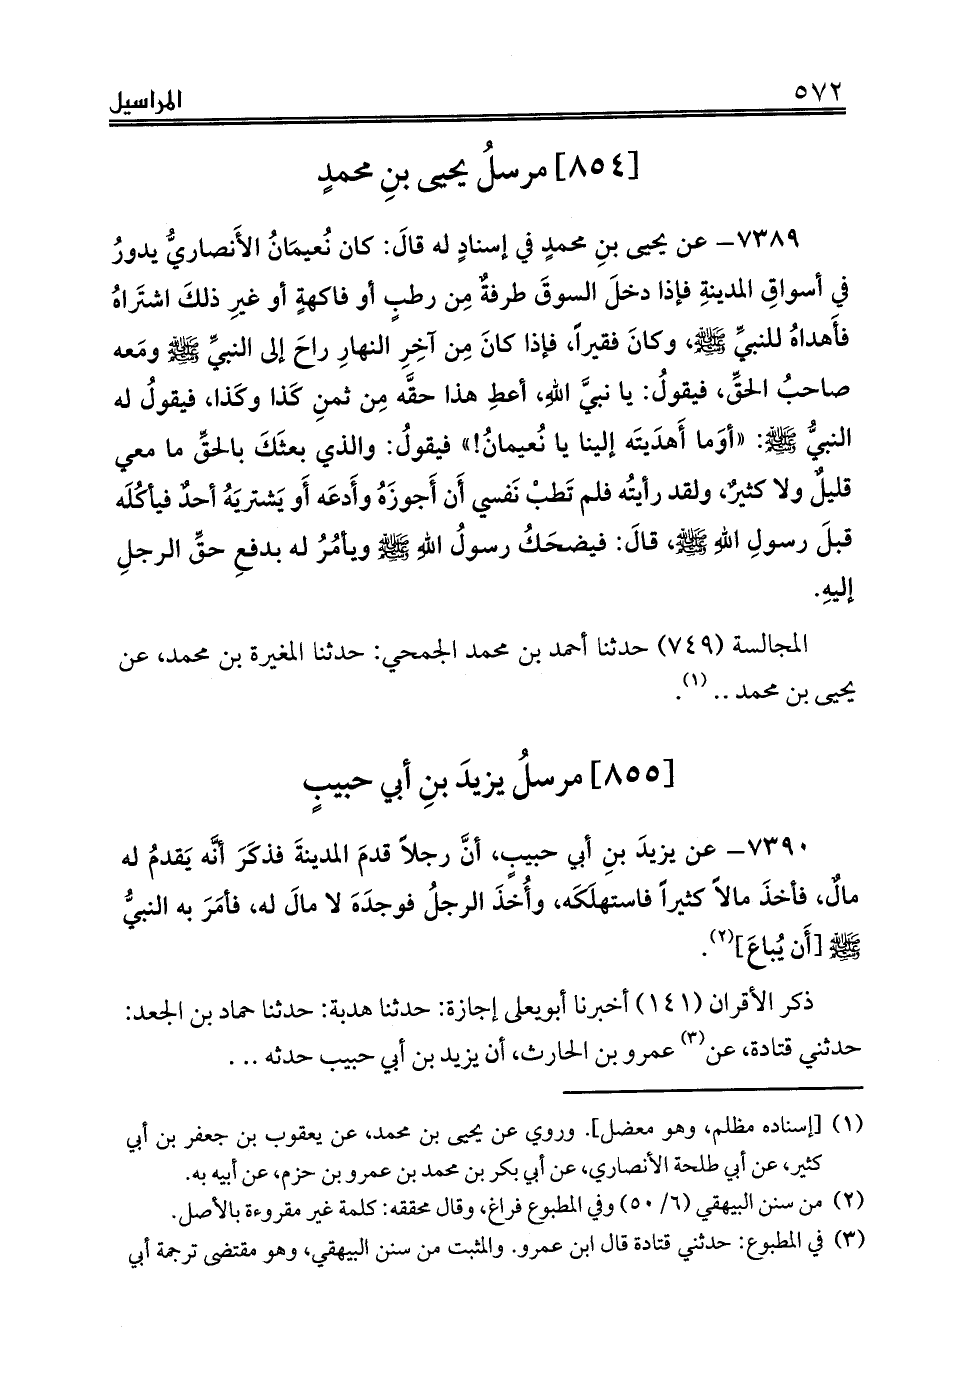 ٥٧٢
المراسيل
[٨٥٤] مرسلُ يحيى بنِ محمدٍ
٧٣٨٩– عن يحيى بنِ محمدٍ في إسنادٍ له قالَ: كان نُعيمَانُ الأَنصاريُّ يدورُ
في أسواقِ المدينةِ فإذا دخلَ السوقَ طرفةٌ مِن رطبٍ أو فاكهةٍ أو غيرِ ذلكَ اشتَراهُ
فأَهداهُ للنبيِّ ﷺ، وكانَ فقيراً، فإذا كانَ مِن آخِرِ النهارِ راحَ إلى النبيِّ ﷺ ومَعه
صاحبُ الحقِّ، فيقولُ: يا نبيَّ اللهِ، أعطِ هذا حقَّه مِن ثمنِ كَذا وكَذا، فيقولُ له
النبيُّ ﷺ: «أوَما أَهدَيتَه إلينا يا نُعيمانُ!» فيقولُ: والذي بعثَكَ بالحقِّ ما معي
قليلٌ ولا كثيرٌ، ولقد رأيتُه فلم تَطبْ نَفسي أَن أَجوزَهُ وأَدعَه أَو يَشتريَهُ أحدٌ فيأكُلَه
قبلَ رسولِ اللهِ ﷺ، قالَ: فيضحَكُ رسولُ اللهِ ﷺ ويأمُرُ له بدفعِ حقِّ الرجلِ
إليهِ.
المجالسة (٧٤٩) حدثنا أحمد بن محمد الجمحي: حدثنا المغيرة بن محمد، عن
يحيى بن محمد .. (١).
[٨٥٥] مرسلُ يزيدَ بنِ أبي حبيبٍ
٧٣٩٠– عن يزيدَ بنِ أبي حبيبٍ، أنَّ رجلاً قدمَ المدينةَ فذكَرَ أنَّه يَقدمُ له
مالٌ، فأخذَ مالاً كثيراً فاستهلَكَه، وأُخذَ الرجلُ فوجدَهَ لا مالَ له، فأمَرَ به النبيُّ
ﷺ [أَن يُباعَ](٢).
ذكر الأقران (١٤١) أخبرنا أبويعلى إجازة: حدثنا هدبة: حدثنا حماد بن الجعد:
حدثني قتادة، عن(٣) عمرو بن الحارث، أن يزيد بن أبي حبيب حدثه .. .
(١) [إسناده مظلم، وهو معضل]. وروي عن يحيى بن محمد، عن يعقوب بن جعفر بن أبي
كثير، عن أبي طلحة الأنصاري، عن أبي بكر بن محمد بن عمرو بن حزم، عن أبيه به.
(٢) من سنن البيهقي (٦/ ٥٠) وفي المطبوع فراغ، وقال محققه: كلمة غير مقروءة بالأصل.
(٣) في المطبوع: حدثني قتادة قال ابن عمرو. والمثبت من سنن البيهقي، وهو مقتضى ترجمة أبي